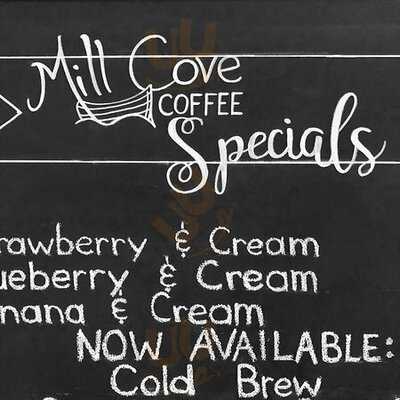 Mill Cove
COFFEE
Specials
rawberry & Cream
ueberry & Cream
nana & Cream
NOW AVAILABLE:
Cold Brew